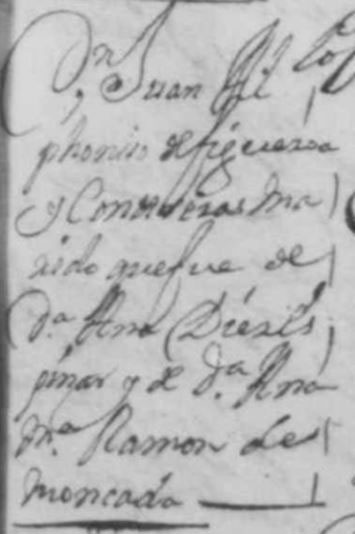 Dn Juan Ild
phonso de figueroa
y Contreras Ma
rido que fue de
Da. Ana Díez Es
pinar y de Da. Ana
Ma. Ramon de
Moncada